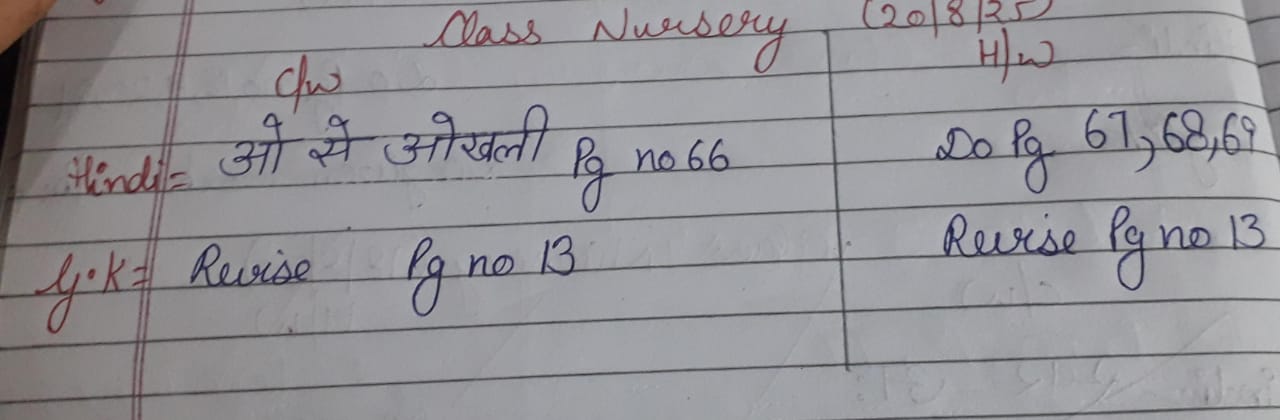 Class Nursery (20/8/25)
C/w H/w
Hindi = ओ से ओखली Pg no 66 Do Pg 67, 68, 69
G.K = Revise Pg no 13 Revise Pg no 13